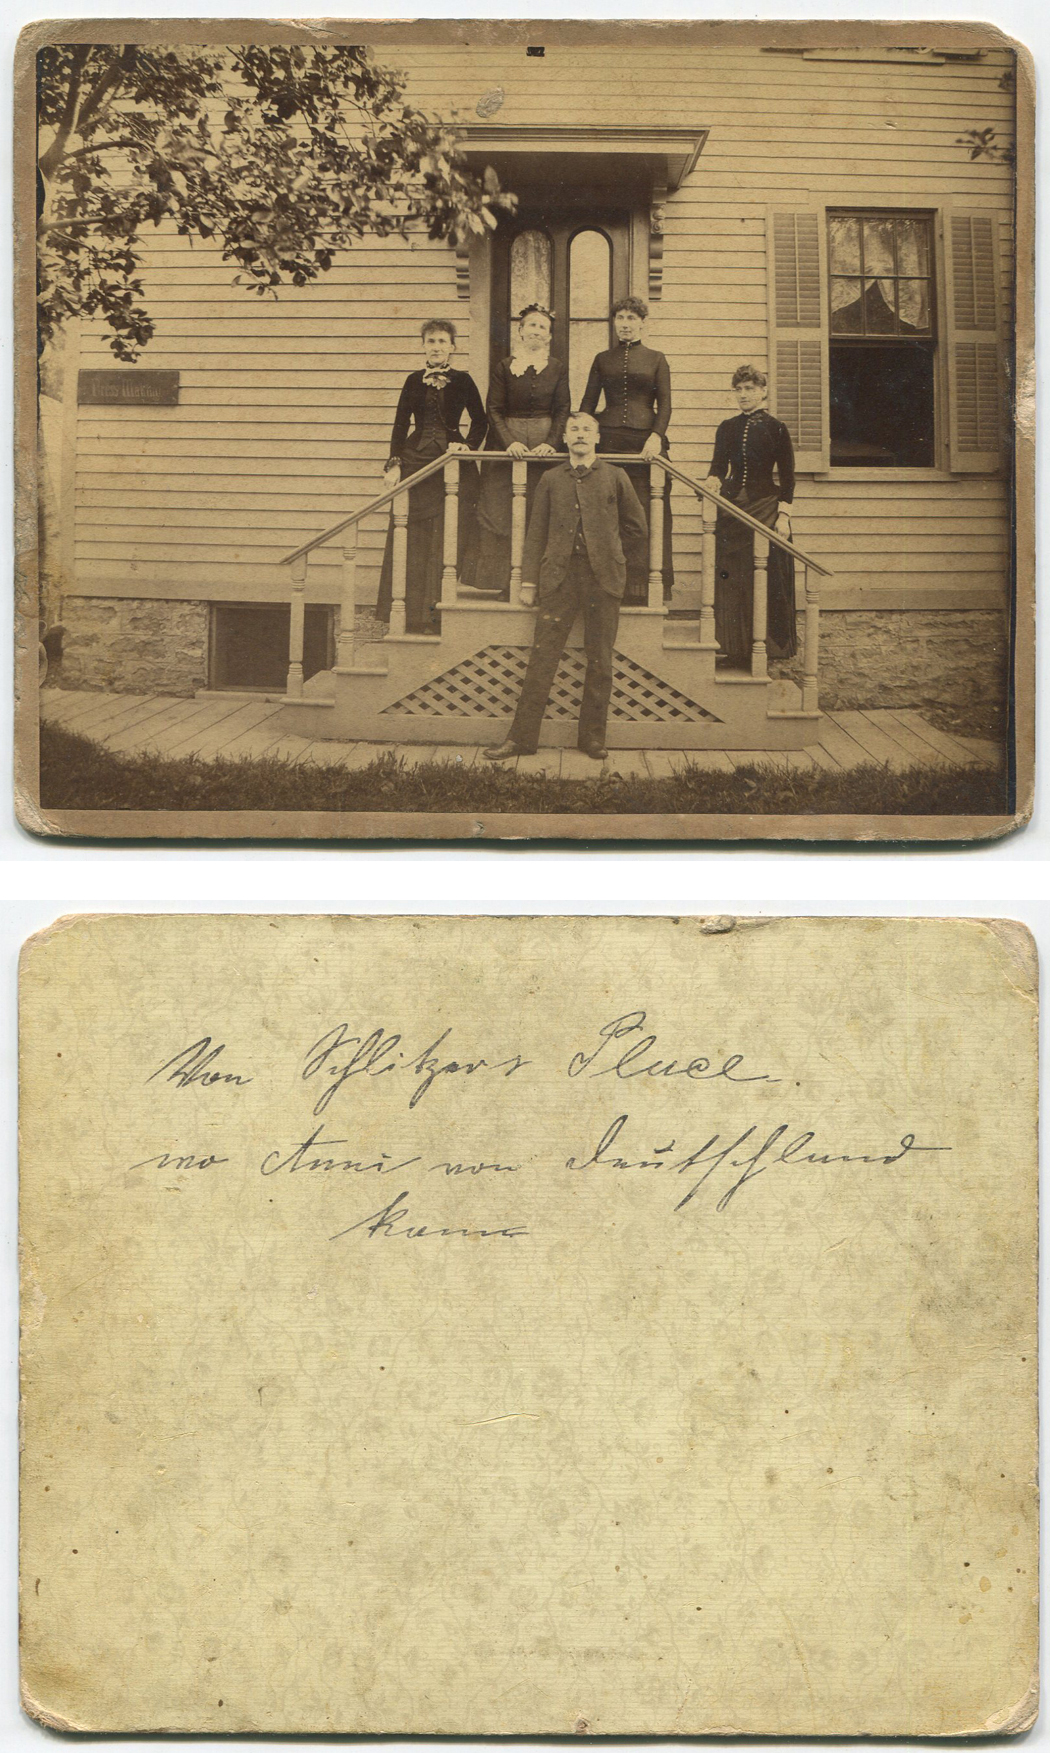 Von Schlitzers Place.
wo Anni von Deutschland
kam